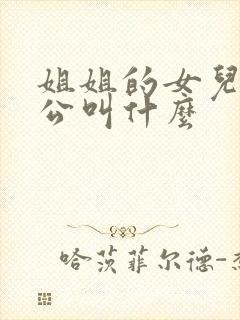 姐姐的女兒
公叫什麼
哈茨菲尔德-杰